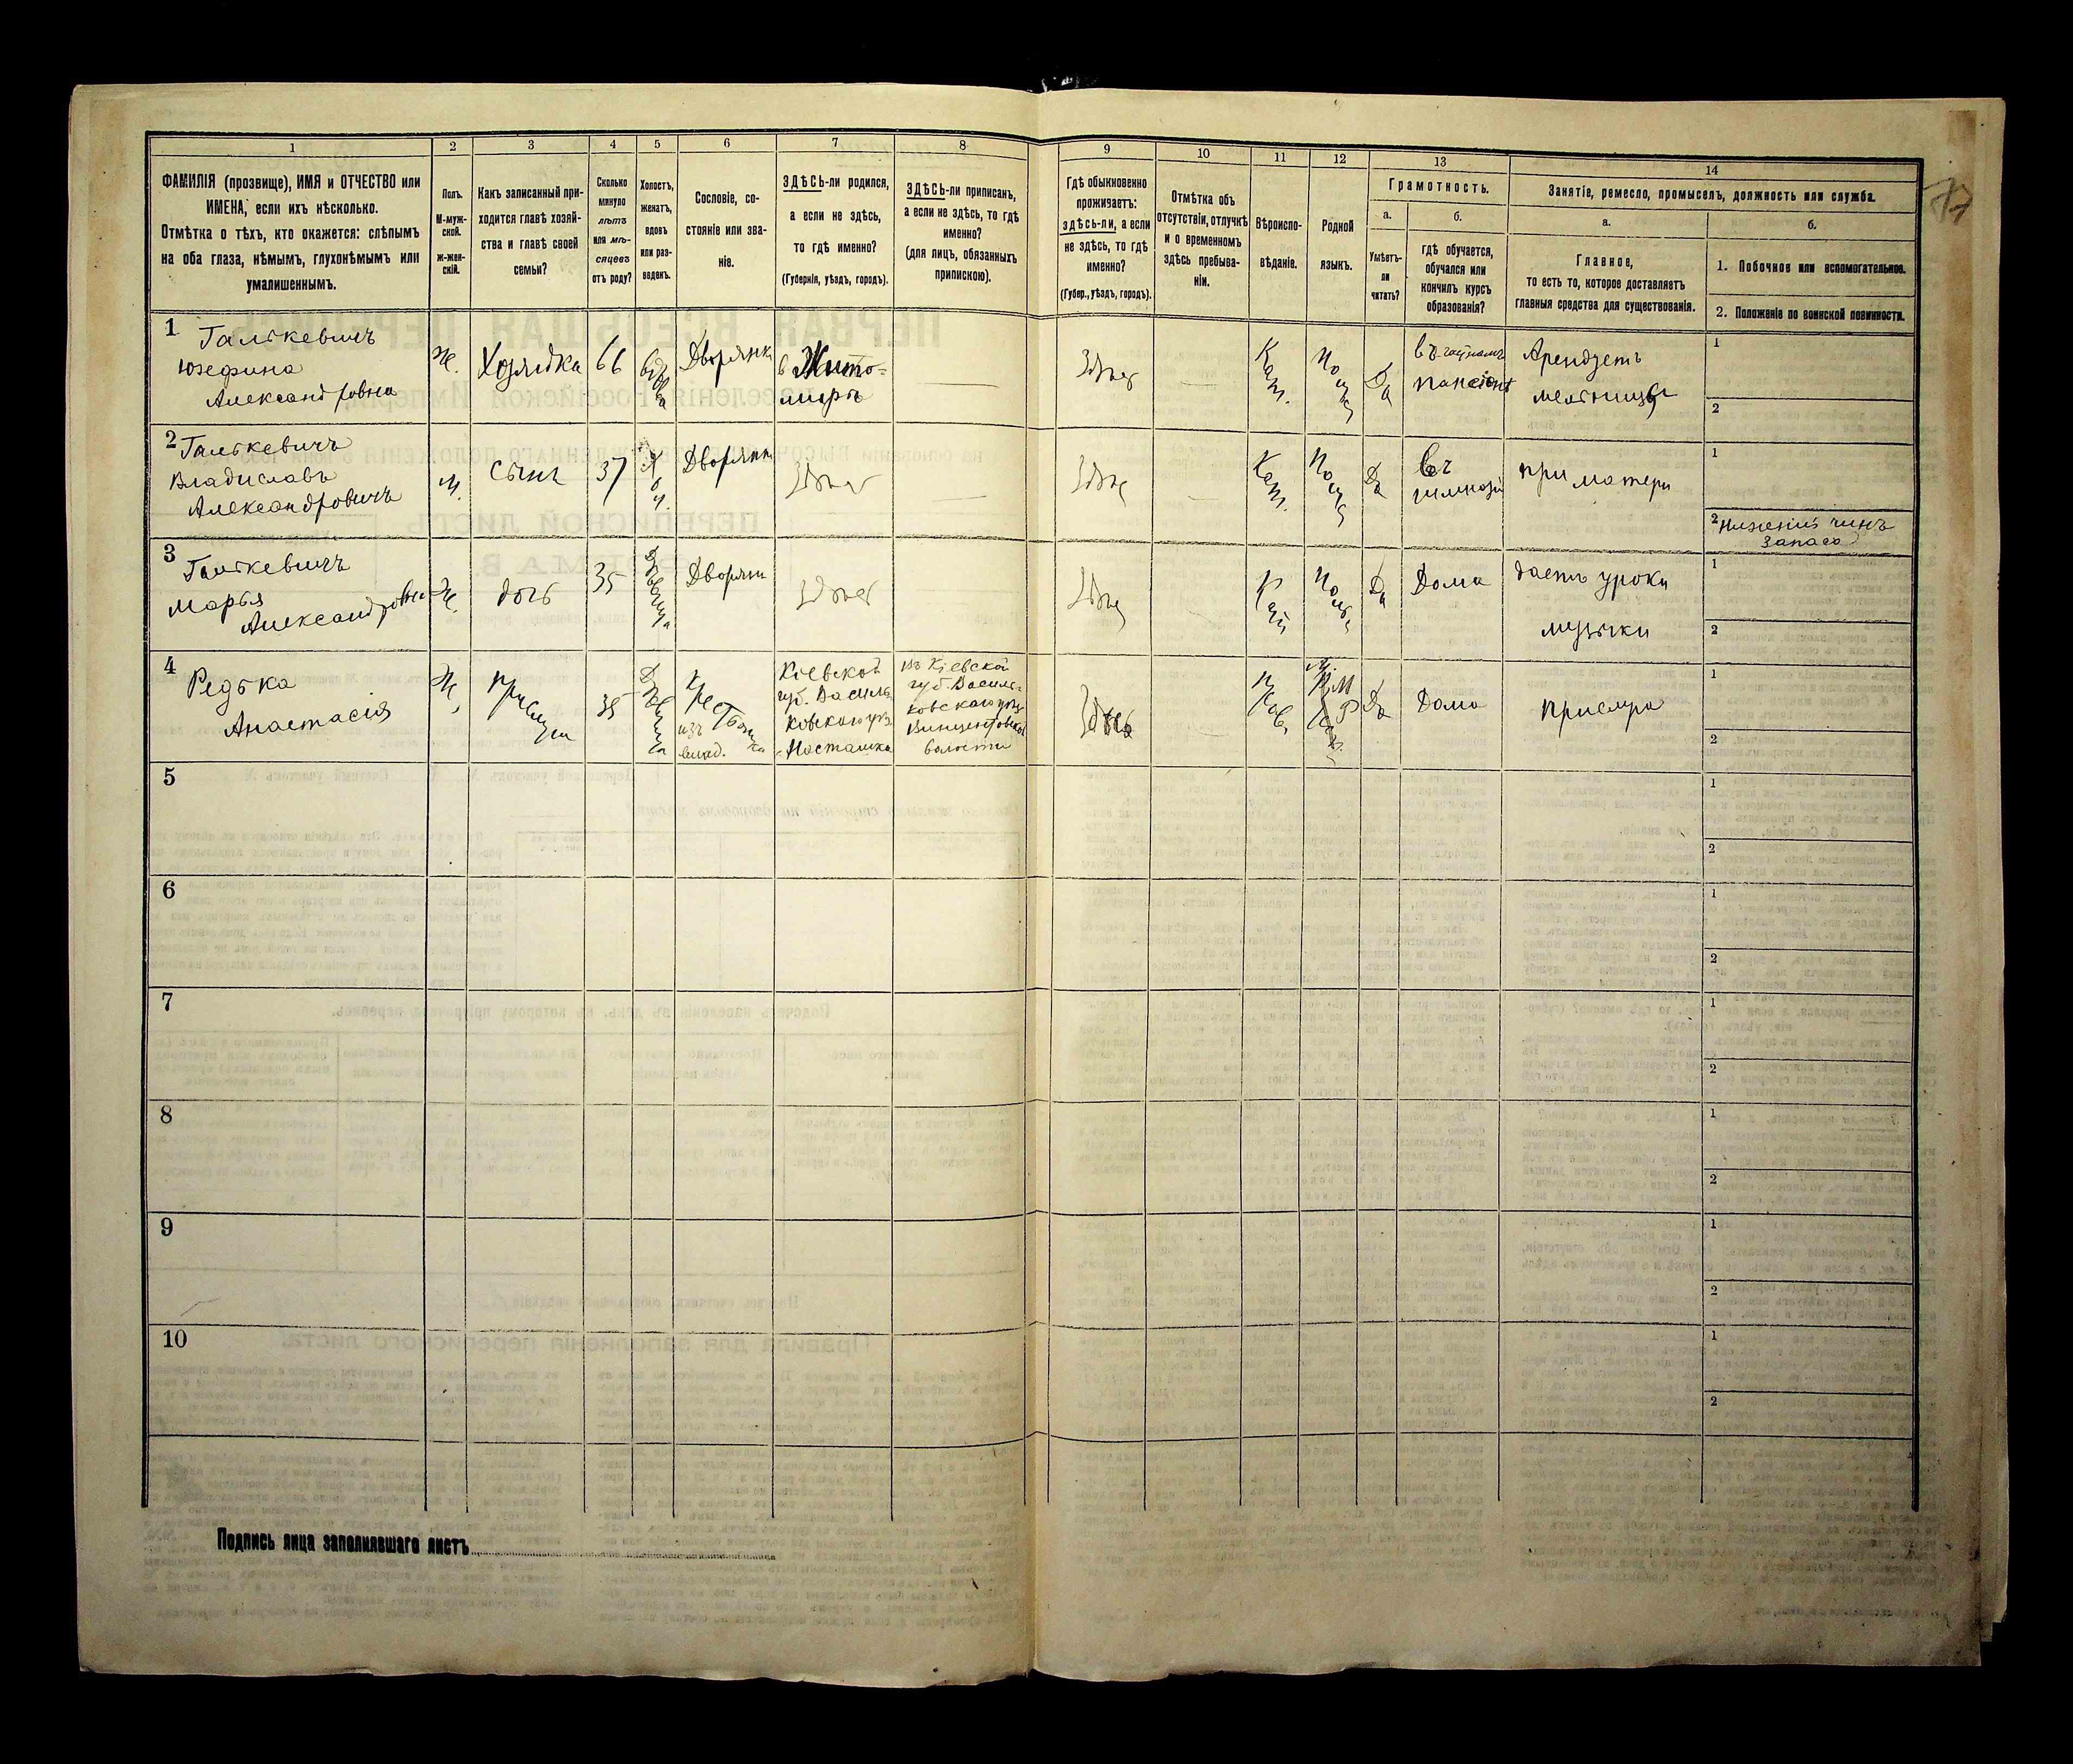 1
2
3
4
5
6
7
8
9
10
11
12
13
14
ФАМИЛІЯ (прозвище), ИМЯ и ОТЧЕСТВО или
ИМЕНА, если ихъ нѣсколько.
Отмѣтка о тѣхъ, кто окажется: слѣпымъ
на оба глаза, нѣмымъ, глухонѣмымъ или
умалишеннымъ.
Полъ.
М-муж-
ской.
ж-жен-
скій.
Какъ записанный при-
ходится главѣ хозяй-
ства и главѣ своей
семьи?
Сколько
минуло
лѣтъ
или мѣ-
сяцевъ
отъ роду?
Холостъ,
женатъ,
вдовъ
или раз-
веденъ.
Сословіе, со-
стояніе или зва-
ніе.
ЗДѢСЬ-ли родился,
а если не здѣсь,
то гдѣ именно?
(Губернія, уѣздъ, городъ).
ЗДѢСЬ-ли приписанъ,
а если не здѣсь, то гдѣ
именно?
(для лицъ, обязанныхъ
припискою).
Гдѣ обыкновенно
проживаетъ:
здѣсь-ли, а если
не здѣсь, то гдѣ
именно?
(Губер., уѣздъ, городъ).
Отмѣтка объ
отсутствіи, отлучкѣ
и о временномъ
здѣсь пребыва-
ніи.
Вѣроиспо-
вѣданіе.
Родной
языкъ.
Грамотность.
а.
Умѣетъ-
ли
читать?
б.
гдѣ обучается,
обучался или
кончилъ курсъ
образованія?
Занятіе, ремесло, промыселъ, должность или служба.
а.
Главное,
то есть то, которое доставляетъ
главныя средства для существованія.
б.
1. Побочное или вспомогательное.
2. Положеніе по воинской повинности.
77
1
Галькевичъ
Юзефина
Александровна
Ж.
Хозяйка
66
вдова
Дворянка
в Жито-
миръ
Здѣсь
Кат.
Да
пансіонѣ
Арендуетъ
мельницу
1
2
2
Галькевичъ
Владиславъ
Александровичъ
М.
сынъ
37
Хол.
Дворянин
Здѣсь
Здѣсь
Кат.
Да
въ
гимназіи
при матери
1
2
Нижній чинъ
запаса
3
Галькевичъ
Марья
Александровна
Ж.
дочь
35
Дѣвица
Дворян
Здѣсь
Здѣсь
Кат
Да
Дома
даетъ уроки
музыки
1
2
4
Редька
Анастасія
Ж.
Прислуга
35
Дѣвица
Крестьянка
изъ
влад.
Кіевской
губ. Василь-
ковскаго уѣз.
Насташка
изъ Кіевской
губ. Василь-
ковскаго уѣз
Винцентовской
волости
Здѣсь
Прав.
Да
Дома
Прислуга
1
2
5
1
2
6
1
2
7
1
2
8
1
2
9
1
2
10
1
2
Подпись лица заполнявшаго листъ